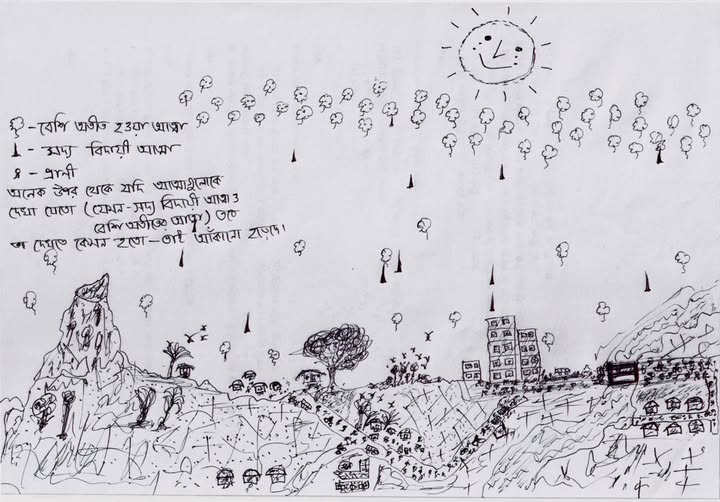 - বেশি অতীত হওয়া আত্মা
- সদ্য বিদায়ী আত্মা
- প্রাণী
অনেক উপর থেকে যদি আত্মাগুলোকে
দেখা যেতো (যেমন - সদ্য বিদায়ী আত্মা ও
বেশি অতীতের আত্মা) তবে
তা দেখতে কেমন হতো - তাই আঁকানো হয়েছে।